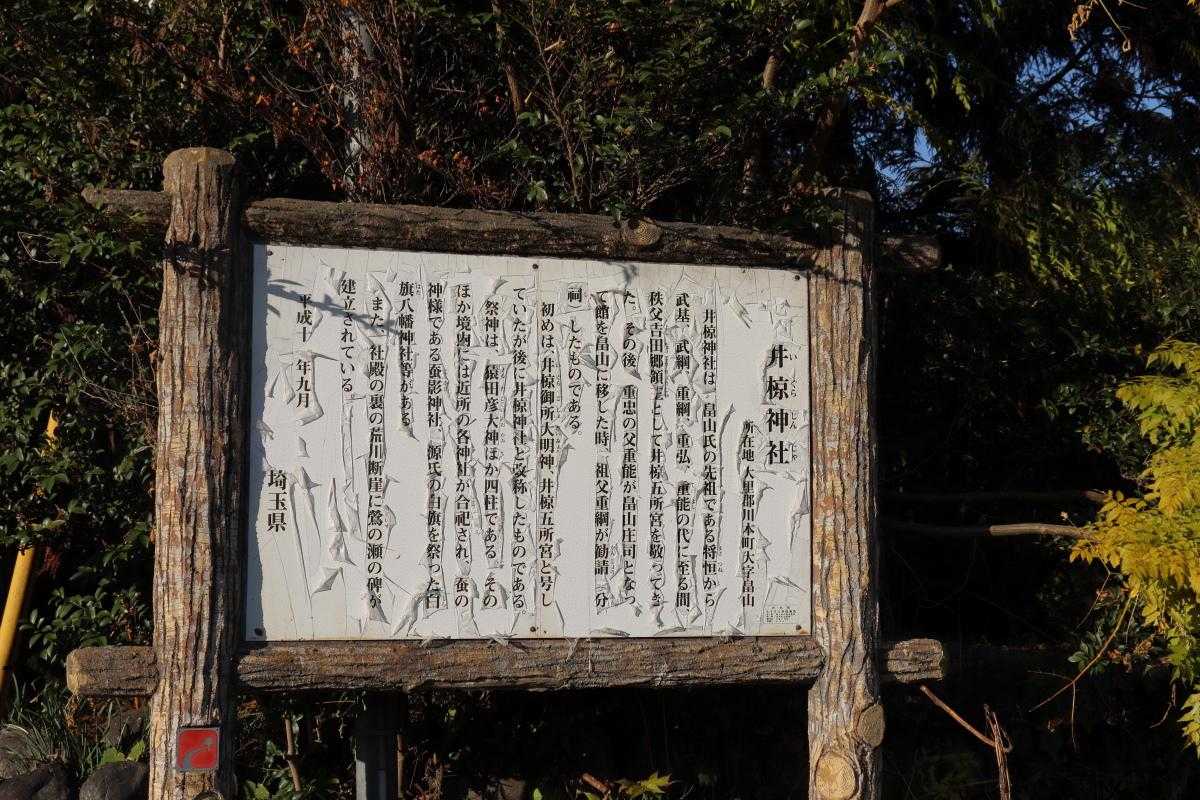 井椋神社
いぐら じんじゃ
所在地 大里郡川本町大字畠山
井椋神社は、畠山氏の先祖である将恒から
武基、武綱、重綱、重弘、重能の代に至る間、
秩父吉田郷領主として井椋五所宮を敬ってき
た。その後、重忠の父重能が畠山庄司となっ
て館を畠山に移した時、祖父重綱が勧請(分
祠)したものである。
初めは、井椋御所大明神、井椋五所宮と号し
ていたが後に井椋神社と改称したものである。
祭神は、猿田彦大神ほか四柱である。その
ほか境内には近所の各神社が合祀され、蚕の
神様である蚕影神社、源氏の白旗を祭った白
旗八幡神社等がある。
また、社殿の裏の荒川断崖に鶯の瀬の碑が
建立されている。
平成十 年九月
埼玉県